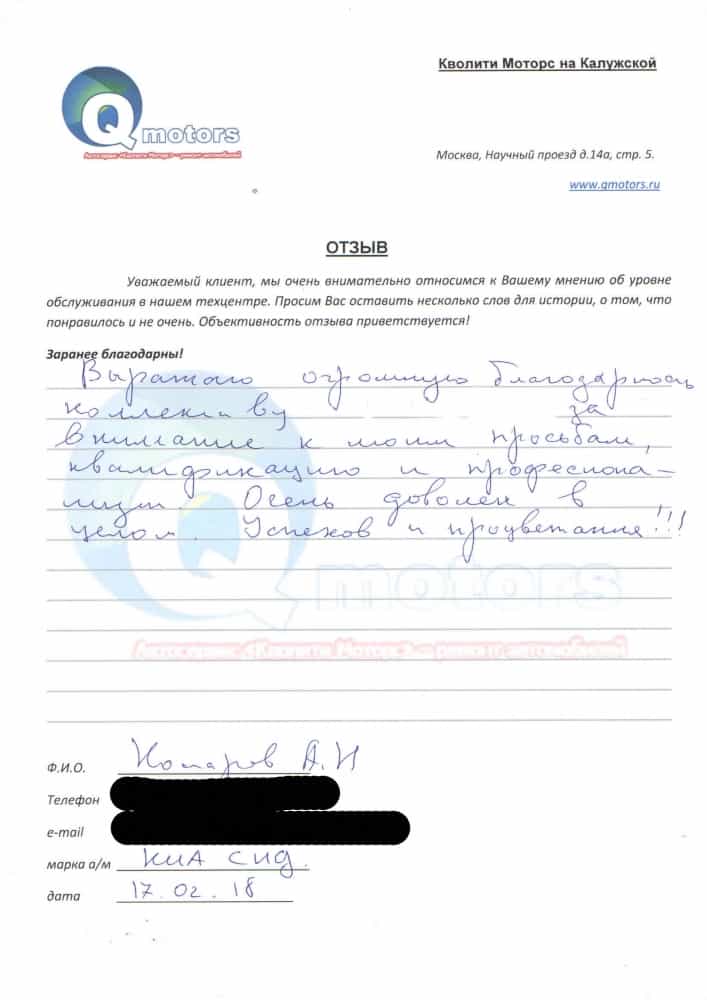 Кволити Моторс на Калужской
Q motors
Автосервис «Кволити Моторс» – ремонт автомобилей
Москва, Научный проезд д.14а, стр. 5.
www.qmotors.ru
ОТЗЫВ
Уважаемый клиент, мы очень внимательно относимся к Вашему мнению об уровне
обслуживания в нашем техцентре. Просим Вас оставить несколько слов для истории, о том, что
понравилось и не очень. Объективность отзыва приветствуется!
Заранее благодарны!
Выражаю огромную благодарность
коллективу за
внимание к моим просьбам,
квалификацию и професиона-
лизм. Очень доволен в
целом. Успехов и процветания!!!
Q motors
Автосервис «Кволити Моторс» – ремонт автомобилей
Ф.И.О. Комаров А.Н
Телефон
e-mail
марка а/м КИА СИД.
дата 17.02.18